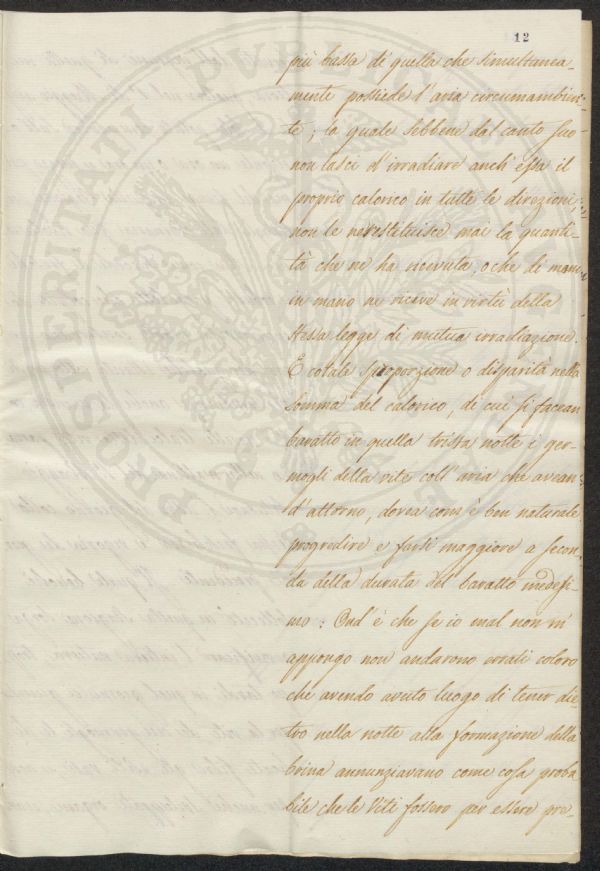 12
più bassa di quella che simultanea-
mente possiede l'aria circumambien-
te; la quale sebbene dal canto suo
non lasci d'irradiare anch'essa il
proprio calorico in tutte le direzioni,
non le ne restituisce mai la quanti-
tà che ne ha ricevuta, o che di mano
in mano ne riceve in virtù della
stessa legge di mutua irradiazione.
E cotale sproporzione o disparità nella
somma del calorico, di cui si facean
baratto in quella trista notte i ger-
mogli della vite coll'aria che avean
d'attorno, dovea com'è ben naturale
progredire e farsi maggiore a secon-
da della durata del baratto medesi-
mo. Ond'è che se io mal non m'
appongo non andarono errati coloro
che avendo avuto luogo di tener die
tro nella notte alla formazione della
brina annunziavano come cosa proba
bile che le Viti fossero per essere pre-
PROSPERITATI PUBLICAE